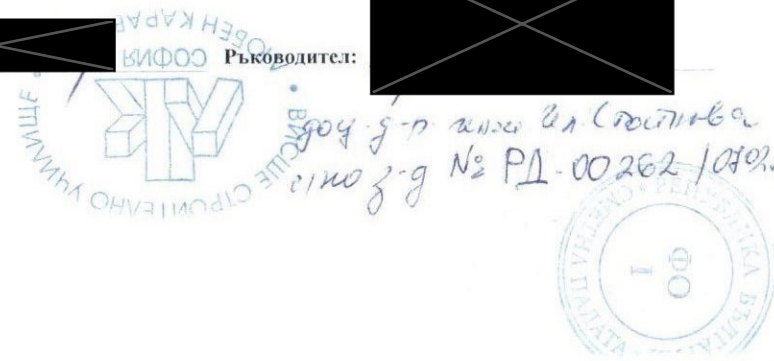 Ръководител:
доц. д-р инж. Ил. Стоянова
сно з-д № РД-00262/0702.
ВИСШЕ СТРОИТЕЛНО УЧИЛИЩЕ • ЛЮБЕН КАРАВ
СОФИЯ
СМЕТНА ПАЛАТА • РЕПУБЛИКА БЪЛГАР
ФО
1